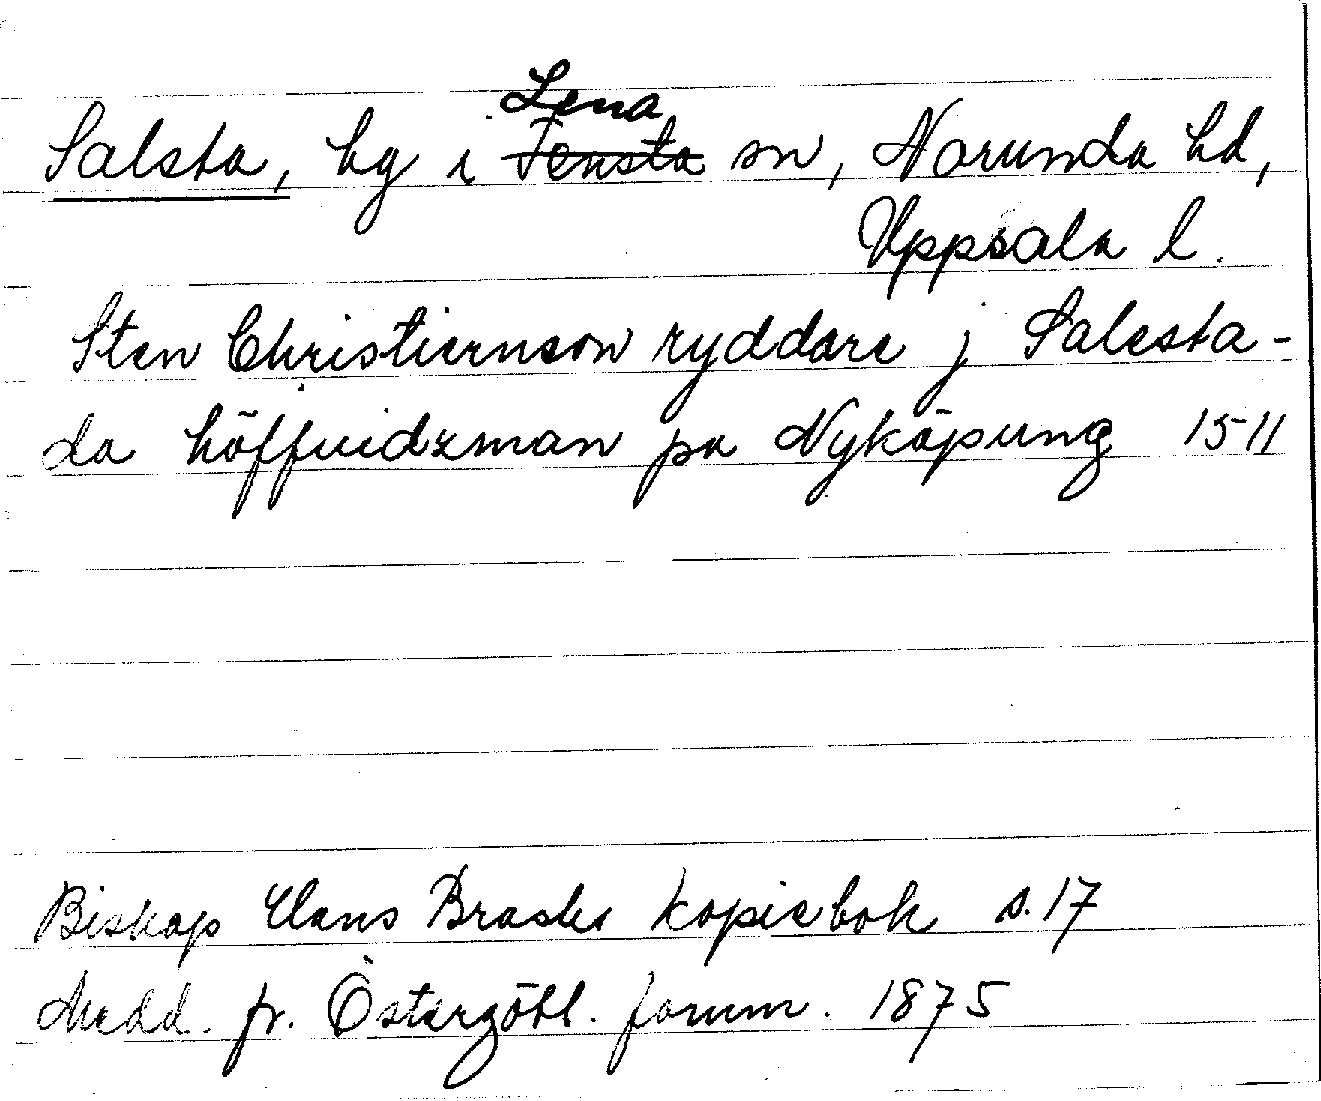 Salsta, hg i Lena Tensta sn, Norunda hd,
Uppsala l.
Sten Christiernson ryddare j Salesta-
da höffuidzman pa Nyköpung 1511
Biskop Hans Brasks kopiebok s. 17
Medd. fr. Östergötl. fornm. 1875